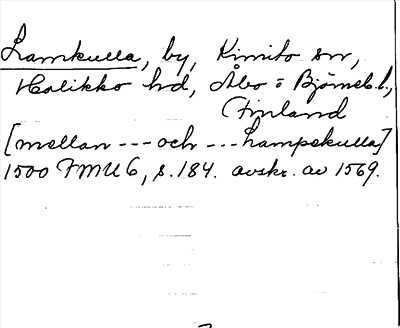 Lamkulla, by, Kimito sn,
Halikko hd, Åbo o Björneb. l.,
Finland
[mellan --- och --- hampskulla]
1500 FMU 6, s. 184. avskr. av 1569.